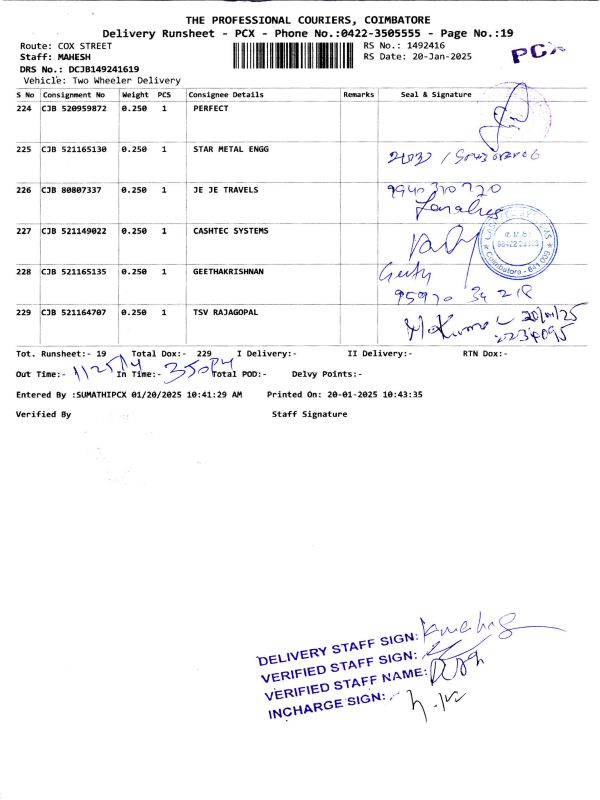 THE PROFESSIONAL COURIERS, COIMBATORE
Delivery Runsheet - PCX - Phone No.:0422-3505555 - Page No.:19
Route: COX STREET RS No.: 1492416
Staff: MAHESH RS Date: 20-Jan-2025
PCX
DRS No.: DCJB149241619
Vehicle: Two Wheeler Delivery
S No Consignment No Weight PCS Consignee Details Remarks Seal & Signature
224 CJB 520959872 0.250 1 PERFECT
225 CJB 521165130 0.250 1 STAR METAL ENGG
226 CJB 80807337 0.250 1 JE JE TRAVELS
227 CJB 521149022 0.250 1 CASHTEC SYSTEMS
Coimbatore - 641 009
228 CJB 521165135 0.250 1 GEETHAKRISHNAN
229 CJB 521164707 0.250 1 TSV RAJAGOPAL
Tot. Runsheet:- 19 Total Dox:- 229 I Delivery:- II Delivery:- RTN Dox:-
Out Time:- In Time:- Total POD:- Delvy Points:-
Entered By :SUMATHIPCX 01/20/2025 10:41:29 AM Printed On: 20-01-2025 10:43:35
Verified By Staff Signature
DELIVERY STAFF SIGN:
VERIFIED STAFF SIGN:
VERIFIED STAFF NAME:
INCHARGE SIGN: